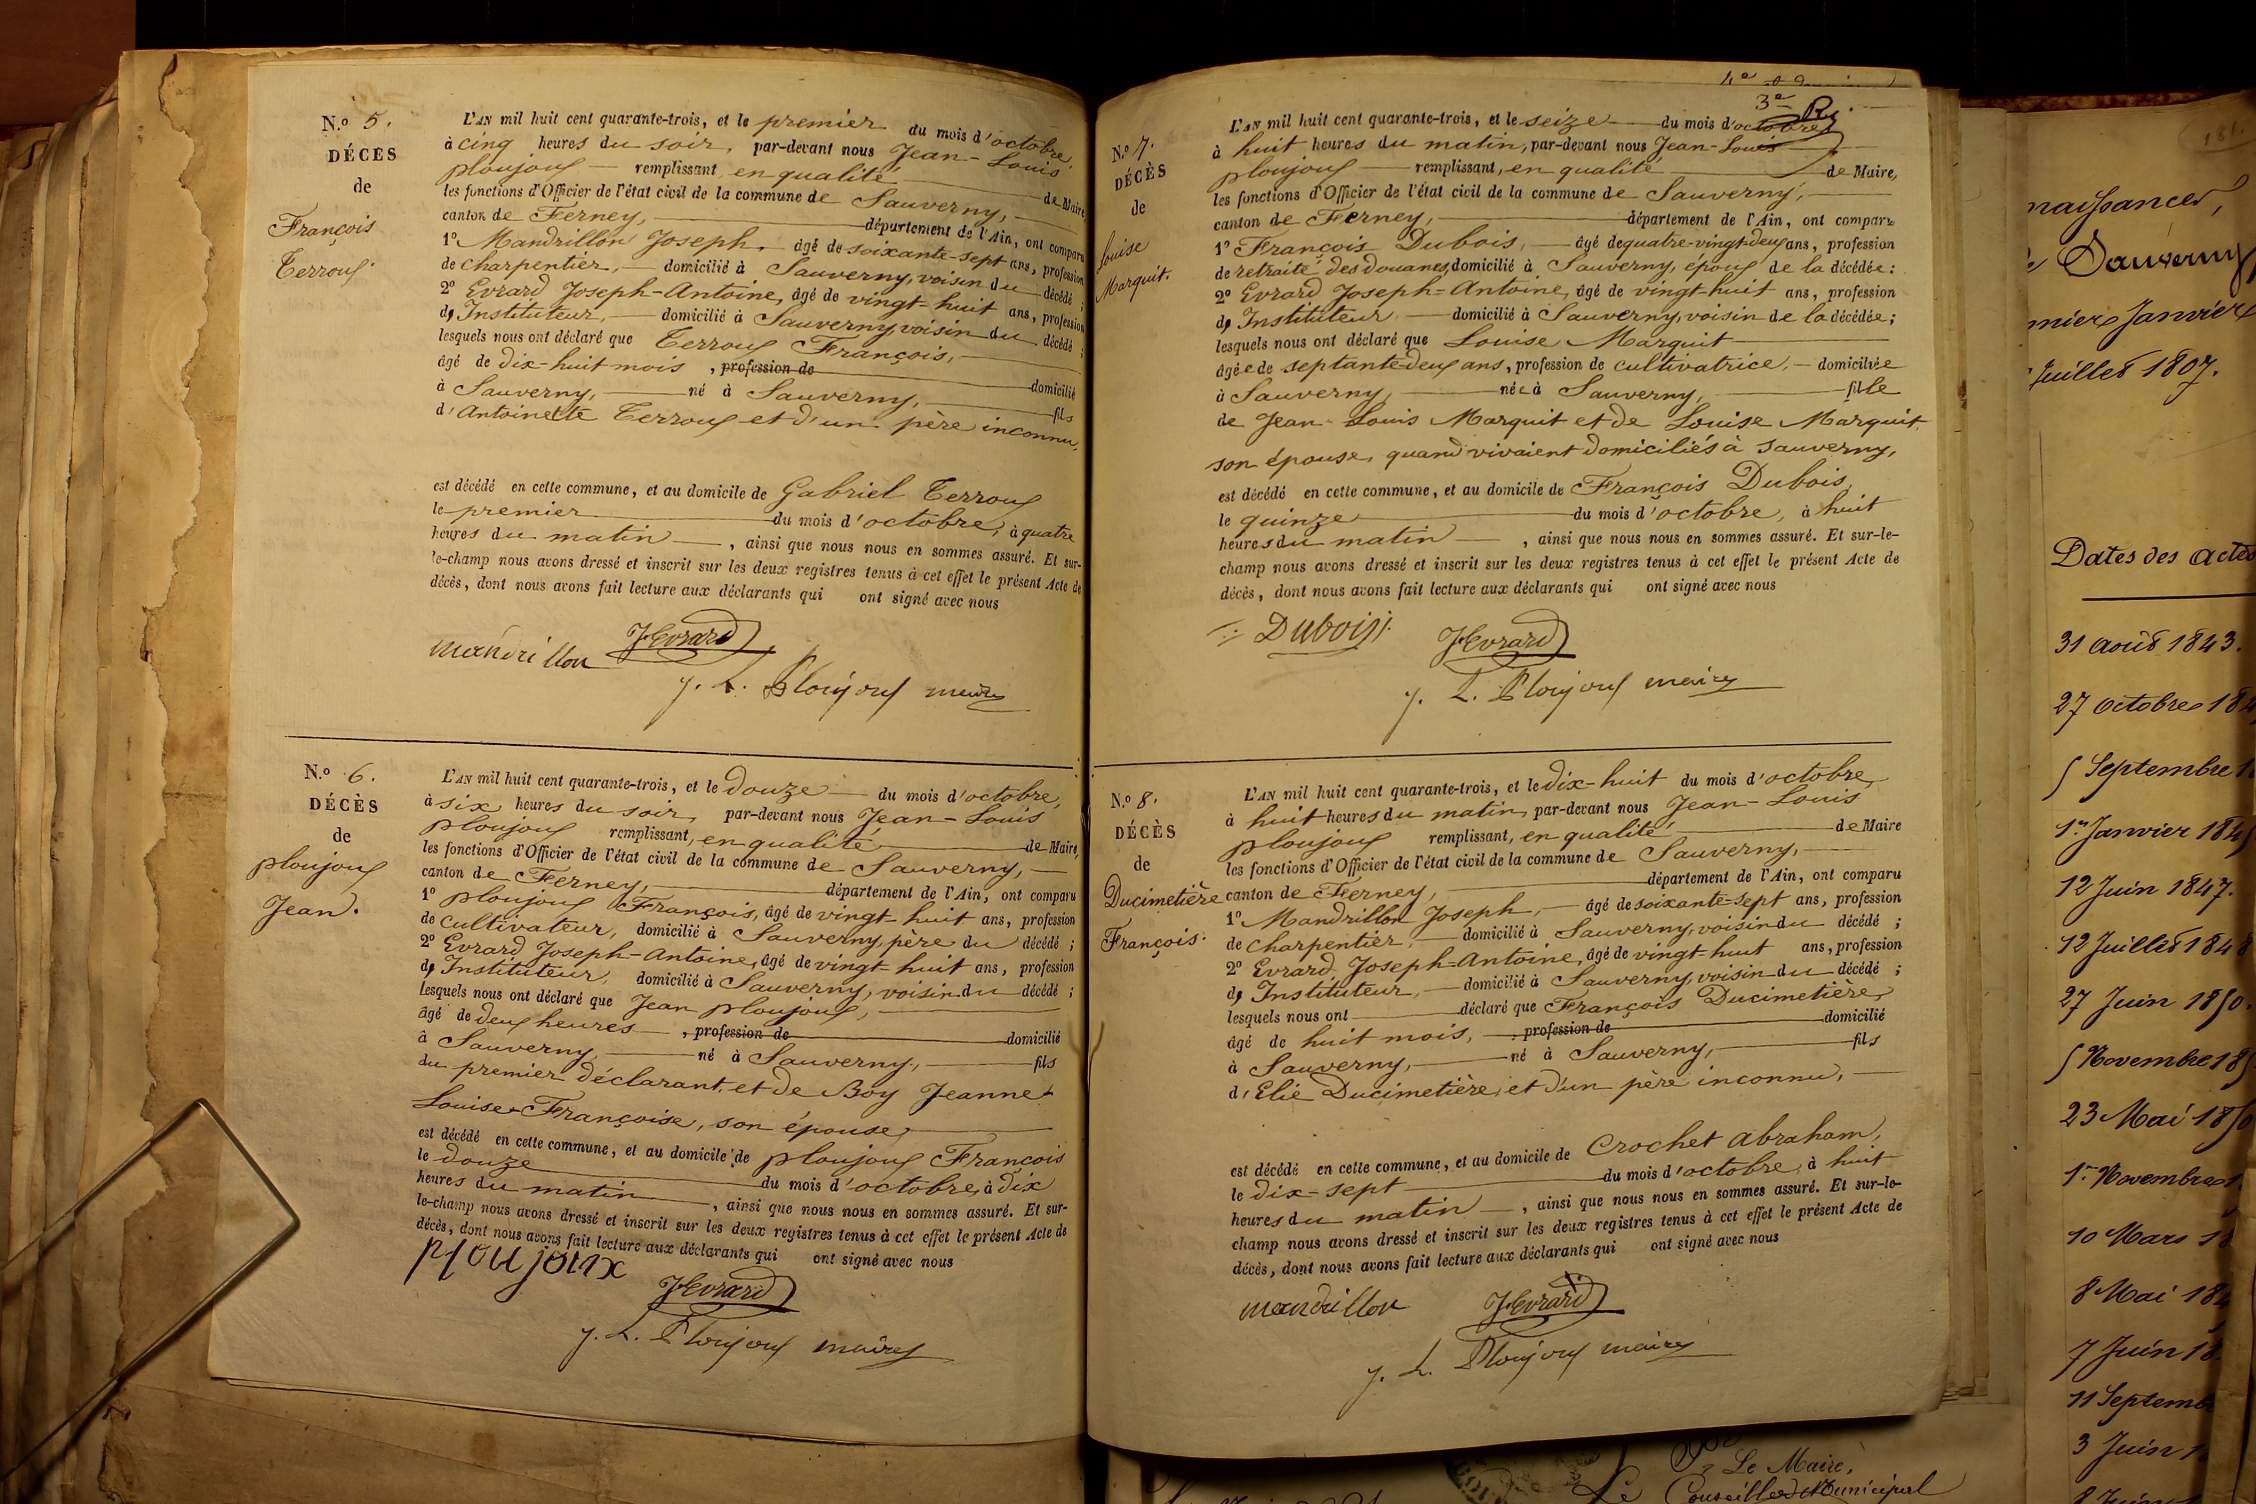 N.º 5.
DÉCÈS
de
François
Terroux.
L'AN mil huit cent quarante-trois, et le premier du mois d'octobre,
à cinq heures du soir, par-devant nous Jean-Louis
ploujoux remplissant, en qualité de Maire,
les fonctions d'Officier de l'état civil de la commune de Sauverny,
canton de Ferney, département de l'Ain, ont comparu
1º Mandrillon Joseph, âgé de soixante-sept ans, profession
de charpentier, domicilié à Sauverny, voisin du décédé ;
2º Evrard Joseph-Antoine, âgé de vingt-huit ans, profession
d'Instituteur, domicilié à Sauverny, voisin du décédé ;
lesquels nous ont déclaré que Terroux François,
âgé de dix-huit mois, profession de domicilié
à Sauverny, né à Sauverny, fils
d'Antoinette Terroux et d'un père inconnu,
est décédé en cette commune, et au domicile de Gabriel Terroux
le premier du mois d'octobre, à quatre
heures du matin, ainsi que nous nous en sommes assuré. Et sur-
le-champ nous avons dressé et inscrit sur les deux registres tenus à cet effet le présent Acte de
décès, dont nous avons fait lecture aux déclarants qui ont signé avec nous
mandrillon J. Evrard
J. L. Ploujoux maire
N.º 6.
DÉCÈS
de
ploujoux
Jean.
L'AN mil huit cent quarante-trois, et le douze du mois d'octobre,
à six heures du soir, par-devant nous Jean-Louis
ploujoux remplissant, en qualité de Maire,
les fonctions d'Officier de l'état civil de la commune de Sauverny,
canton de Ferney, département de l'Ain, ont comparu
1º ploujoux François, âgé de vingt-huit ans, profession
de cultivateur, domicilié à Sauverny, père du décédé ;
2º Evrard Joseph-Antoine, âgé de vingt-huit ans, profession
d'Instituteur, domicilié à Sauverny, voisin du décédé ;
Lesquels nous ont déclaré que Jean ploujoux,
âgé de deux heures, profession de domicilié
à Sauverny, né à Sauverny, fils
du premier déclarant et de Boy Jeanne
Louise Françoise, son épouse,
est décédé en cette commune, et au domicile de ploujoux François
le douze du mois d'octobre, à dix
heures du matin, ainsi que nous nous en sommes assuré. Et sur-
le-champ nous avons dressé et inscrit sur les deux registres tenus à cet effet le présent Acte de
décès, dont nous avons fait lecture aux déclarants qui ont signé avec nous
ploujoux
J. Evrard
J. L. Ploujoux maire
3e
N.º 7.
DÉCÈS
de
Louise
Marquit.
L'AN mil huit cent quarante-trois, et le seize du mois d'octobre,
à huit heures du matin, par-devant nous Jean-Louis
ploujoux remplissant, en qualité de Maire,
les fonctions d'Officier de l'état civil de la commune de Sauverny,
canton de Ferney, département de l'Ain, ont comparu
1º François Dubois, âgé de quatre-vingt-deux ans, profession
de retraité des douanes, domicilié à Sauverny, époux de la décédée :
2º Evrard Joseph-Antoine, âgé de vingt-huit ans, profession
d'Instituteur, domicilié à Sauverny, voisin de la décédée ;
lesquels nous ont déclaré que Louise Marquit
âgée de septante-deux ans, profession de cultivatrice, domiciliée
à Sauverny, née à Sauverny, fille
de Jean-Louis Marquit et de Louise Marquit
son épouse, quand vivaient domiciliés à Sauverny,
est décédé en cette commune, et au domicile de François Dubois,
le quinze du mois d'octobre, à huit
heures du matin, ainsi que nous nous en sommes assuré. Et sur-le-
champ nous avons dressé et inscrit sur les deux registres tenus à cet effet le présent Acte de
décès, dont nous avons fait lecture aux déclarants qui ont signé avec nous
Dubois J. Evrard
J. L. Ploujoux maire
N.º 8.
DÉCÈS
de
Ducimetière
François.
L'AN mil huit cent quarante-trois, et le dix-huit du mois d'octobre,
à huit heures du matin, par-devant nous Jean-Louis
ploujoux remplissant, en qualité de Maire
les fonctions d'Officier de l'état civil de la commune de Sauverny,
canton de Ferney, département de l'Ain, ont comparu
1º Mandrillon Joseph, âgé de soixante-sept ans, profession
de charpentier, domicilié à Sauverny, voisin du décédé ;
2º Evrard Joseph-Antoine, âgé de vingt-huit ans, profession
d'Instituteur, domicilié à Sauverny, voisin du décédé ;
lesquels nous ont déclaré que François Ducimetière,
âgé de huit mois, profession de domicilié
à Sauverny, né à Sauverny, fils
d'Elie Ducimetière, et d'un père inconnu,
est décédé en cette commune, et au domicile de Crochet Abraham,
le dix-sept du mois d'octobre, à huit
heures du matin, ainsi que nous nous en sommes assuré. Et sur-le-
champ nous avons dressé et inscrit sur les deux registres tenus à cet effet le présent Acte de
décès, dont nous avons fait lecture aux déclarants qui ont signé avec nous
mandrillon J. Evrard
J. L. Ploujoux maire
181.
naissances,
Sauverny
Janvier
Juillet 1807.
Dates des actes
31 Août 1843.
27 Octobre 184
5 Septembre 1
1er Janvier 184
12 Juin 1847.
12 Juillet 1848
27 Juin 1850.
5 Novembre 185
23 Mai 185
1er Novembre 1
10 Mars 18
8 Mai 18
7 Juin 18
11 Septemb
3 Juin 1
Le Maire,
Le Conseiller Municipal